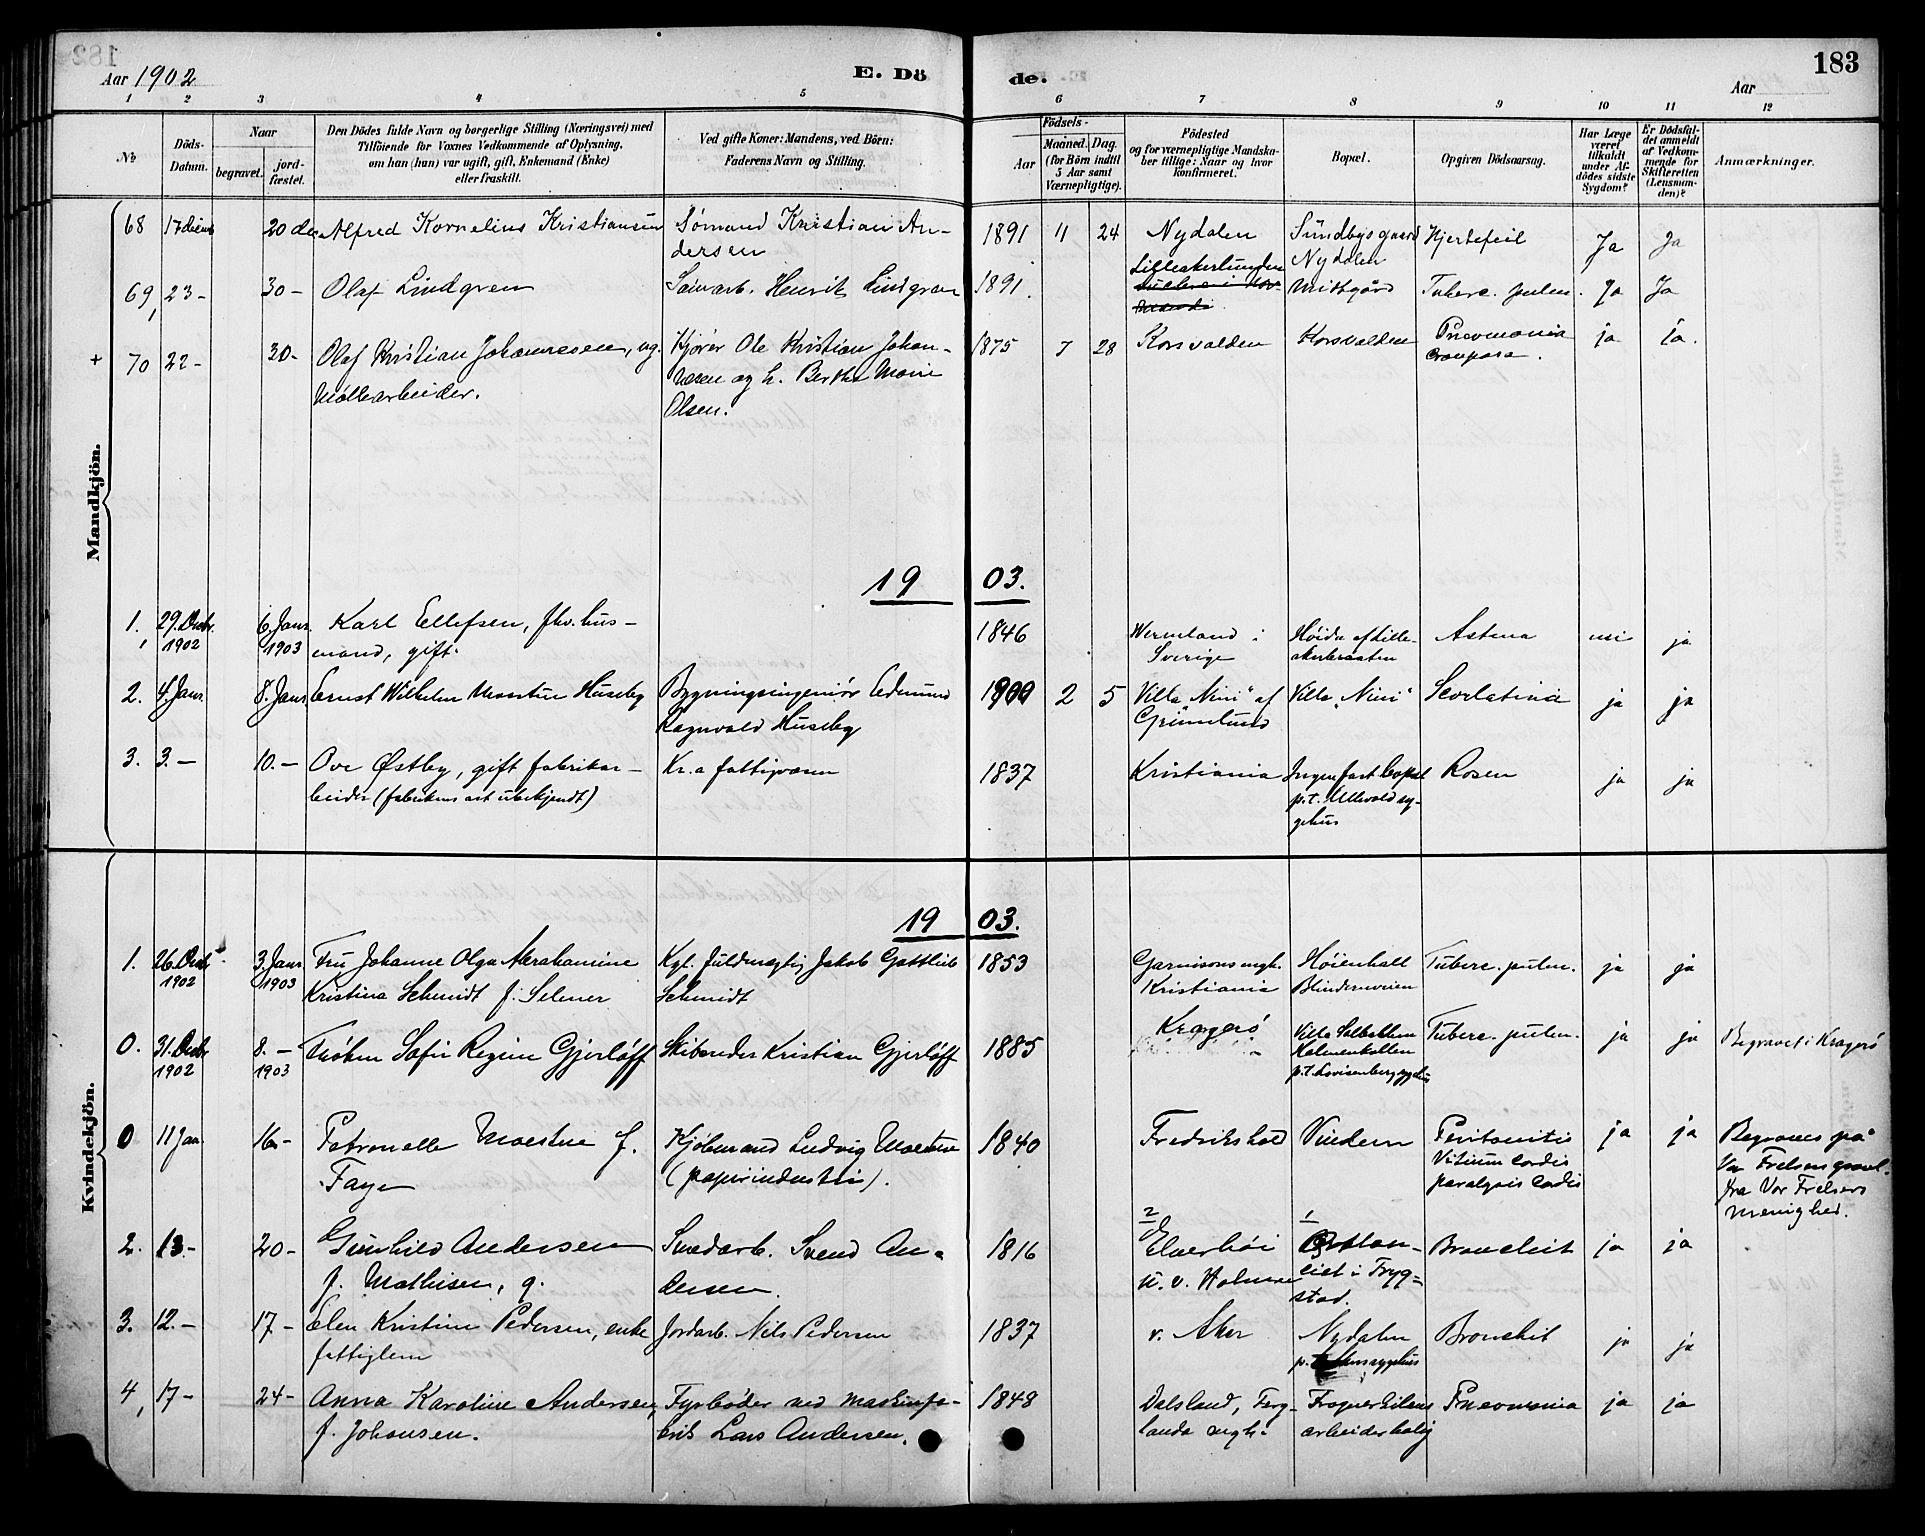 182
Aar 1902
E. Dö
de.
183
Aar
1 2 3 4 5 6 7 8 9 10 11 12
No
Döds-
Datum.
Naar
begravet.
jord-
fæstet.
Den Dödes fulde Navn og borgerlige Stilling (Næringsvei) med
Tilföiende for Voxnes Vedkommende af Oplysning,
om han (hun) var ugift, gift, Enkemand (Enke)
eller fraskilt.
Ved gifte Koner: Mandens, ved Börn:
Faderens Navn og Stilling.
Födsels-
Aar
Maaned. Dag.
(for Börn indtil
5 Aar samt
Værnepligtige).
Födested
og for værnepligtige Mandska-
ber tillige: Naar og hvor
konfirmeret.
Bopæl.
Opgiven Dödsaarsag.
Har Læge
været
tilkaldt
under Af-
dödes sidste
Sygdom?
Er Dödsfal-
det anmeldt
af Vedkom-
mende for
Skifteretten
(Lensman-
den)?
Anmærkninger.
Mandkjön.
68 20 Alfred Kornelius Kristiansen Sømand Kristian An-
dersen
1891 11 24 Nydalen Sundbys gaard Hjertefeil Ja Ja
Nydalen
69, 23- 30- Olaf Lindgren Henrik Lindgren 1891.
Lilleakerlunden
Tuberc. pulm. Ja Ja
+ 70 22- 30- Olaf Kristian Johannesen, ug.
Møllearbeider.
Kjører Ole Kristian Johan-
nesen og h. Berthe Marie
Olsen.
1875 7 28 Korsvolden Korsvolden Pneumonia
crouposa.
ja ja.
19 03.
1., 29. Decbr.
1902
6. Janr.
1903
Karl Ellefsen, fhv. hus-
mand, gift.
1846 Wermland i
Sverige
Astma nei ja
2. 4. Janr. 8. Janr. Ernst Wilhelm Huseby
Bygningsingeniør Edmund
Ragnvald Huseby
1900 2 5 Villa "Nini" af
Grimelund
Villa "Nini" Scarlatina ja ja
3. 3.- 10.- Ove Østby, gift fabrikar-
beider (fabrikens art ubekjendt)
Kr.a fattigvæsen 1837 Kristiania Ingen fast bopæl
p.t. Ullevold sy-
gehus
Rosen ja ja
Kvindekjön.
19 03.
1. 26. Decbr.
1902
3. Janr.
1903
Fru Johanne Olga Abrahamine
Kristina Schmidt f. Selmer
Kgl. fuldmægtig Jakob Gottlieb
Schmidt
1853 Garnisons mgh.
Kristiania
Høienhall
Blindernveien
Tuberc. pulm. ja ja
0. 31. Decbr.
1902
8.-
1903
Frøken Sofie Regine Gjerløff Skibsreder Kristian Gjerløff 1885
Kragerø Villa Solbakken
Holmenkollen
p.t. Lovisenberg sygehus
Tuberc. pulm. ja ja Begravet i Kragerø
0 11 Jan 16- Petronelle Moestue f.
Faye
Kjøbmand Ludvig Moestue
(papirindustri).
1840 Fredrikshald Vindern Peritonitis
Vitium cordis
paralysis cordis
ja ja Begraves på
Vor Frelsers gravl.
fra Vor Frelsers
menighed.
2. 13- 20- Gunhild Andersen
f. Mathisen, g.
Smedarb. Svend An-
dersen.
1816 2
Elverhøi
u. v. Holmen
1
i Tryg-
stad.
Bronchit ja ja
3. 12.- 17- Elen Kristine Pedersen, enke
fattiglem
Jordarb. Nils Pedersen 1837 v. Aker Nydalen
p.t. sygehus
Bronchit ja ja
4, 17- 24- Anna Karoline Andersen,
f. Johansen.
Fyrbøder ved maskinfa-
brik Lars Andersen.
1848 Dalsland, Fer-
landa mgh.
Frognerkilens
arbeiderbolig
Pneumonia ja ja